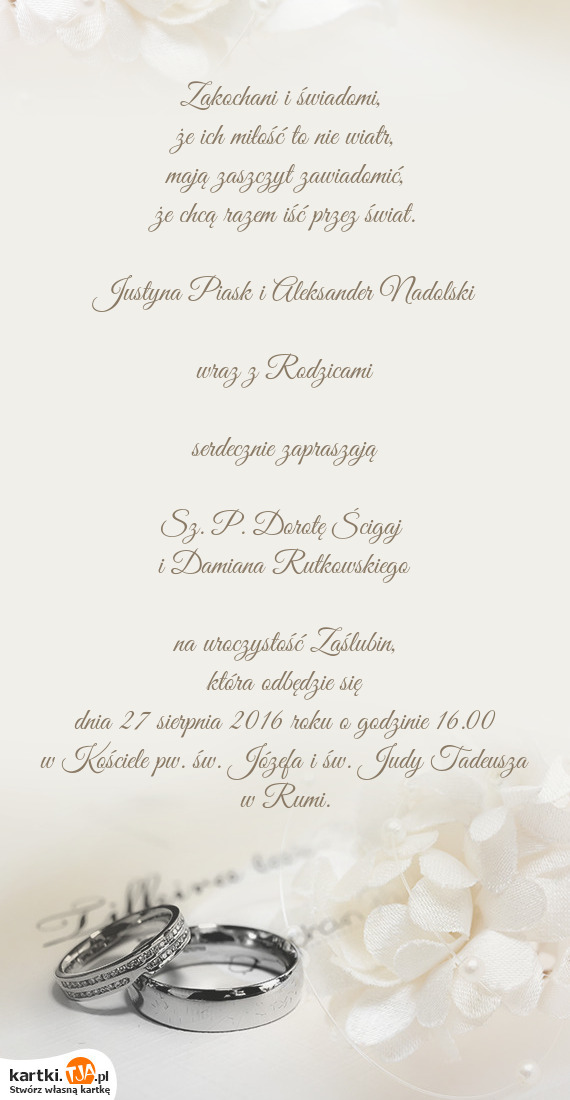 Zakochani i świadomi,
że ich miłość to nie wiatr,
mają zaszczyt zawiadomić,
że chcą razem iść przez świat.
Justyna Piask i Aleksander Nadolski
wraz z Rodzicami
serdecznie zapraszają
Sz. P. Dorotę Ścigaj
i Damiana Rutkowskiego
na uroczystość Zaślubin,
która odbędzie się
dnia 27 sierpnia 2016 roku o godzinie 16.00
w Kościele pw. św. Józefa i św. Judy Tadeusza
w Rumi.
kartki.TJA.pl
Stwórz własną kartkę